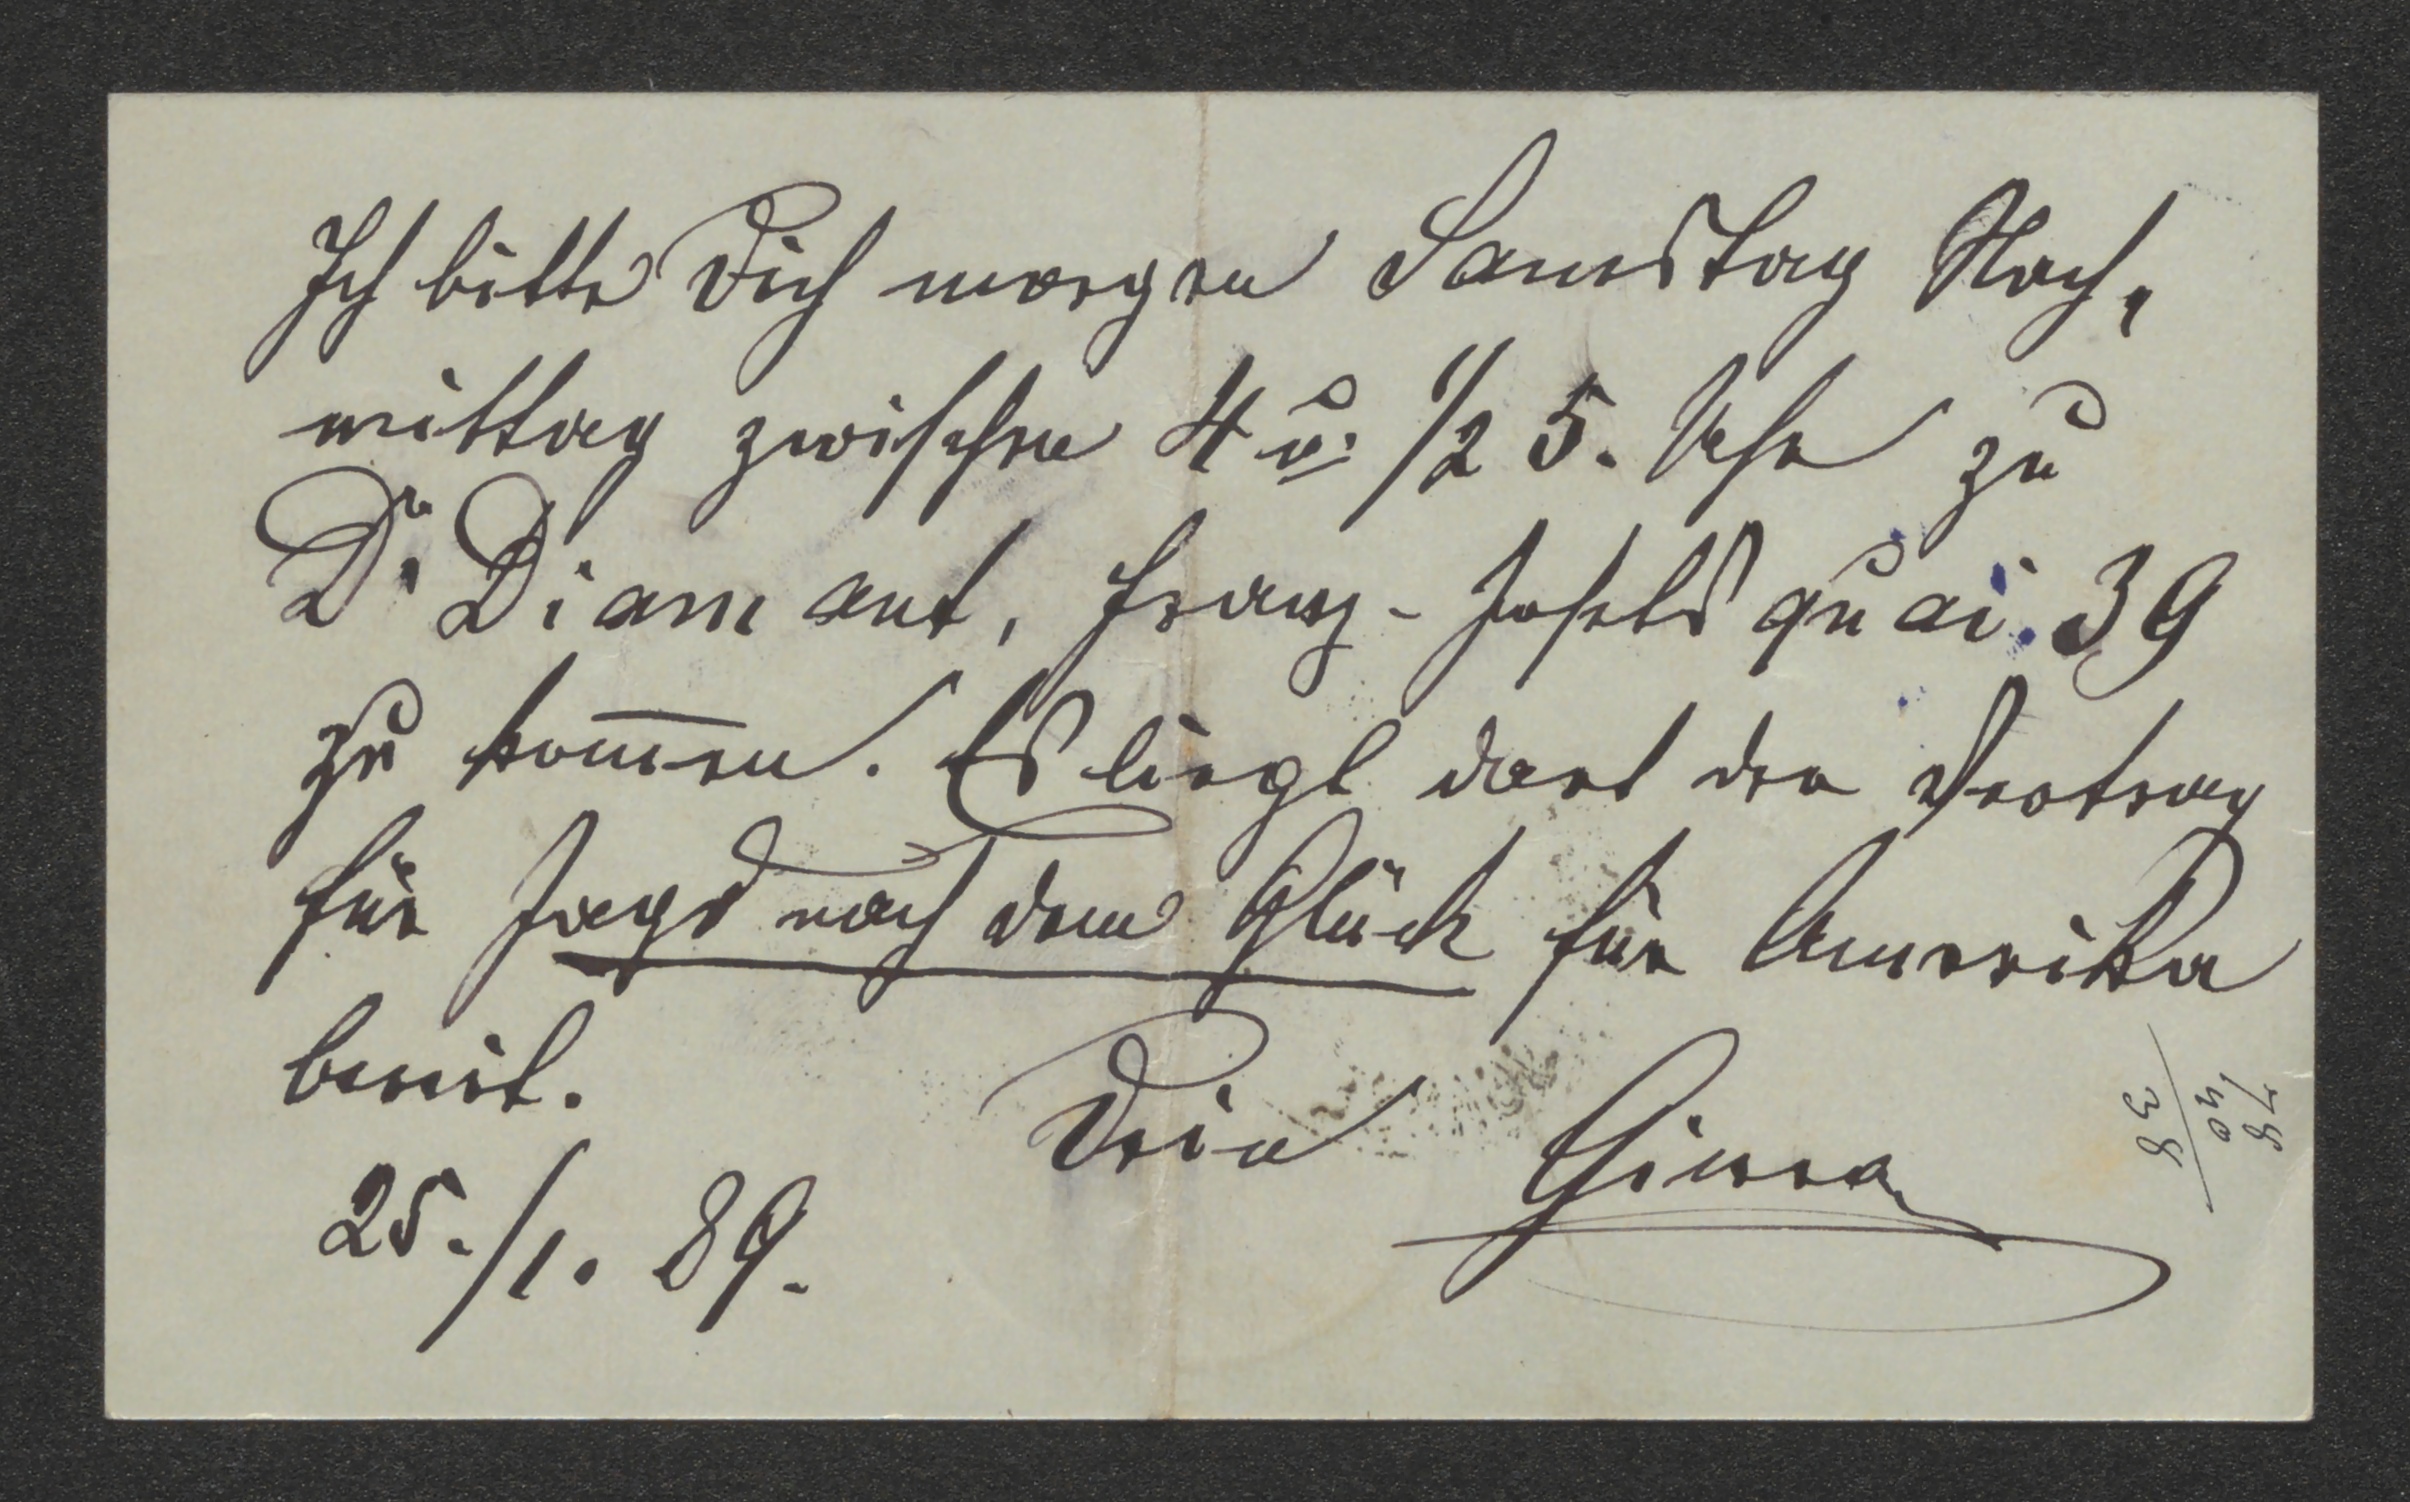 Ich bitte Dich morgen Samstag Nach,
mittag zwischen 4 u. 1/2 5. Uhr zu
Dr Diamant, Franz-Josefs quai 39
zu kom̅en. Es liegt dort der Vertrag
für Jagd nach dem Glück für Amerika
bereit.
Dein
25./1. 89.
78
40
38